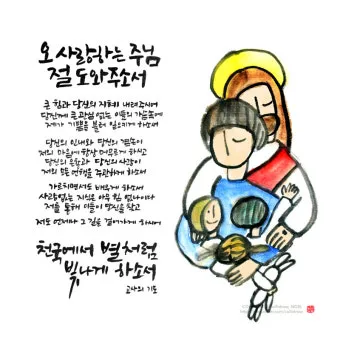 오 사랑하는 주님
절 도와주소서
큰 힘과 당신의 지혜 내려주시어
당신께 큰 관심 없는 이들의 가슴속에
제가 기쁨을 불러 일으키게 하소서
당신의 인내와 당신의 겸손이
저의 마음에 항상 머무르게 하시고
당신의 온화와 당신의 사랑이
저의 모든 언행을 주관하게 하소서
가르치면서도 배우게 하소서
사랑없는 지식은 아무 힘 없나이다
저를 통해 이들이 당신을 찾고
저도 언제나 그 길을 걸어가게 하시어
천국에서 별처럼
빛나게 하소서
교사의 기도